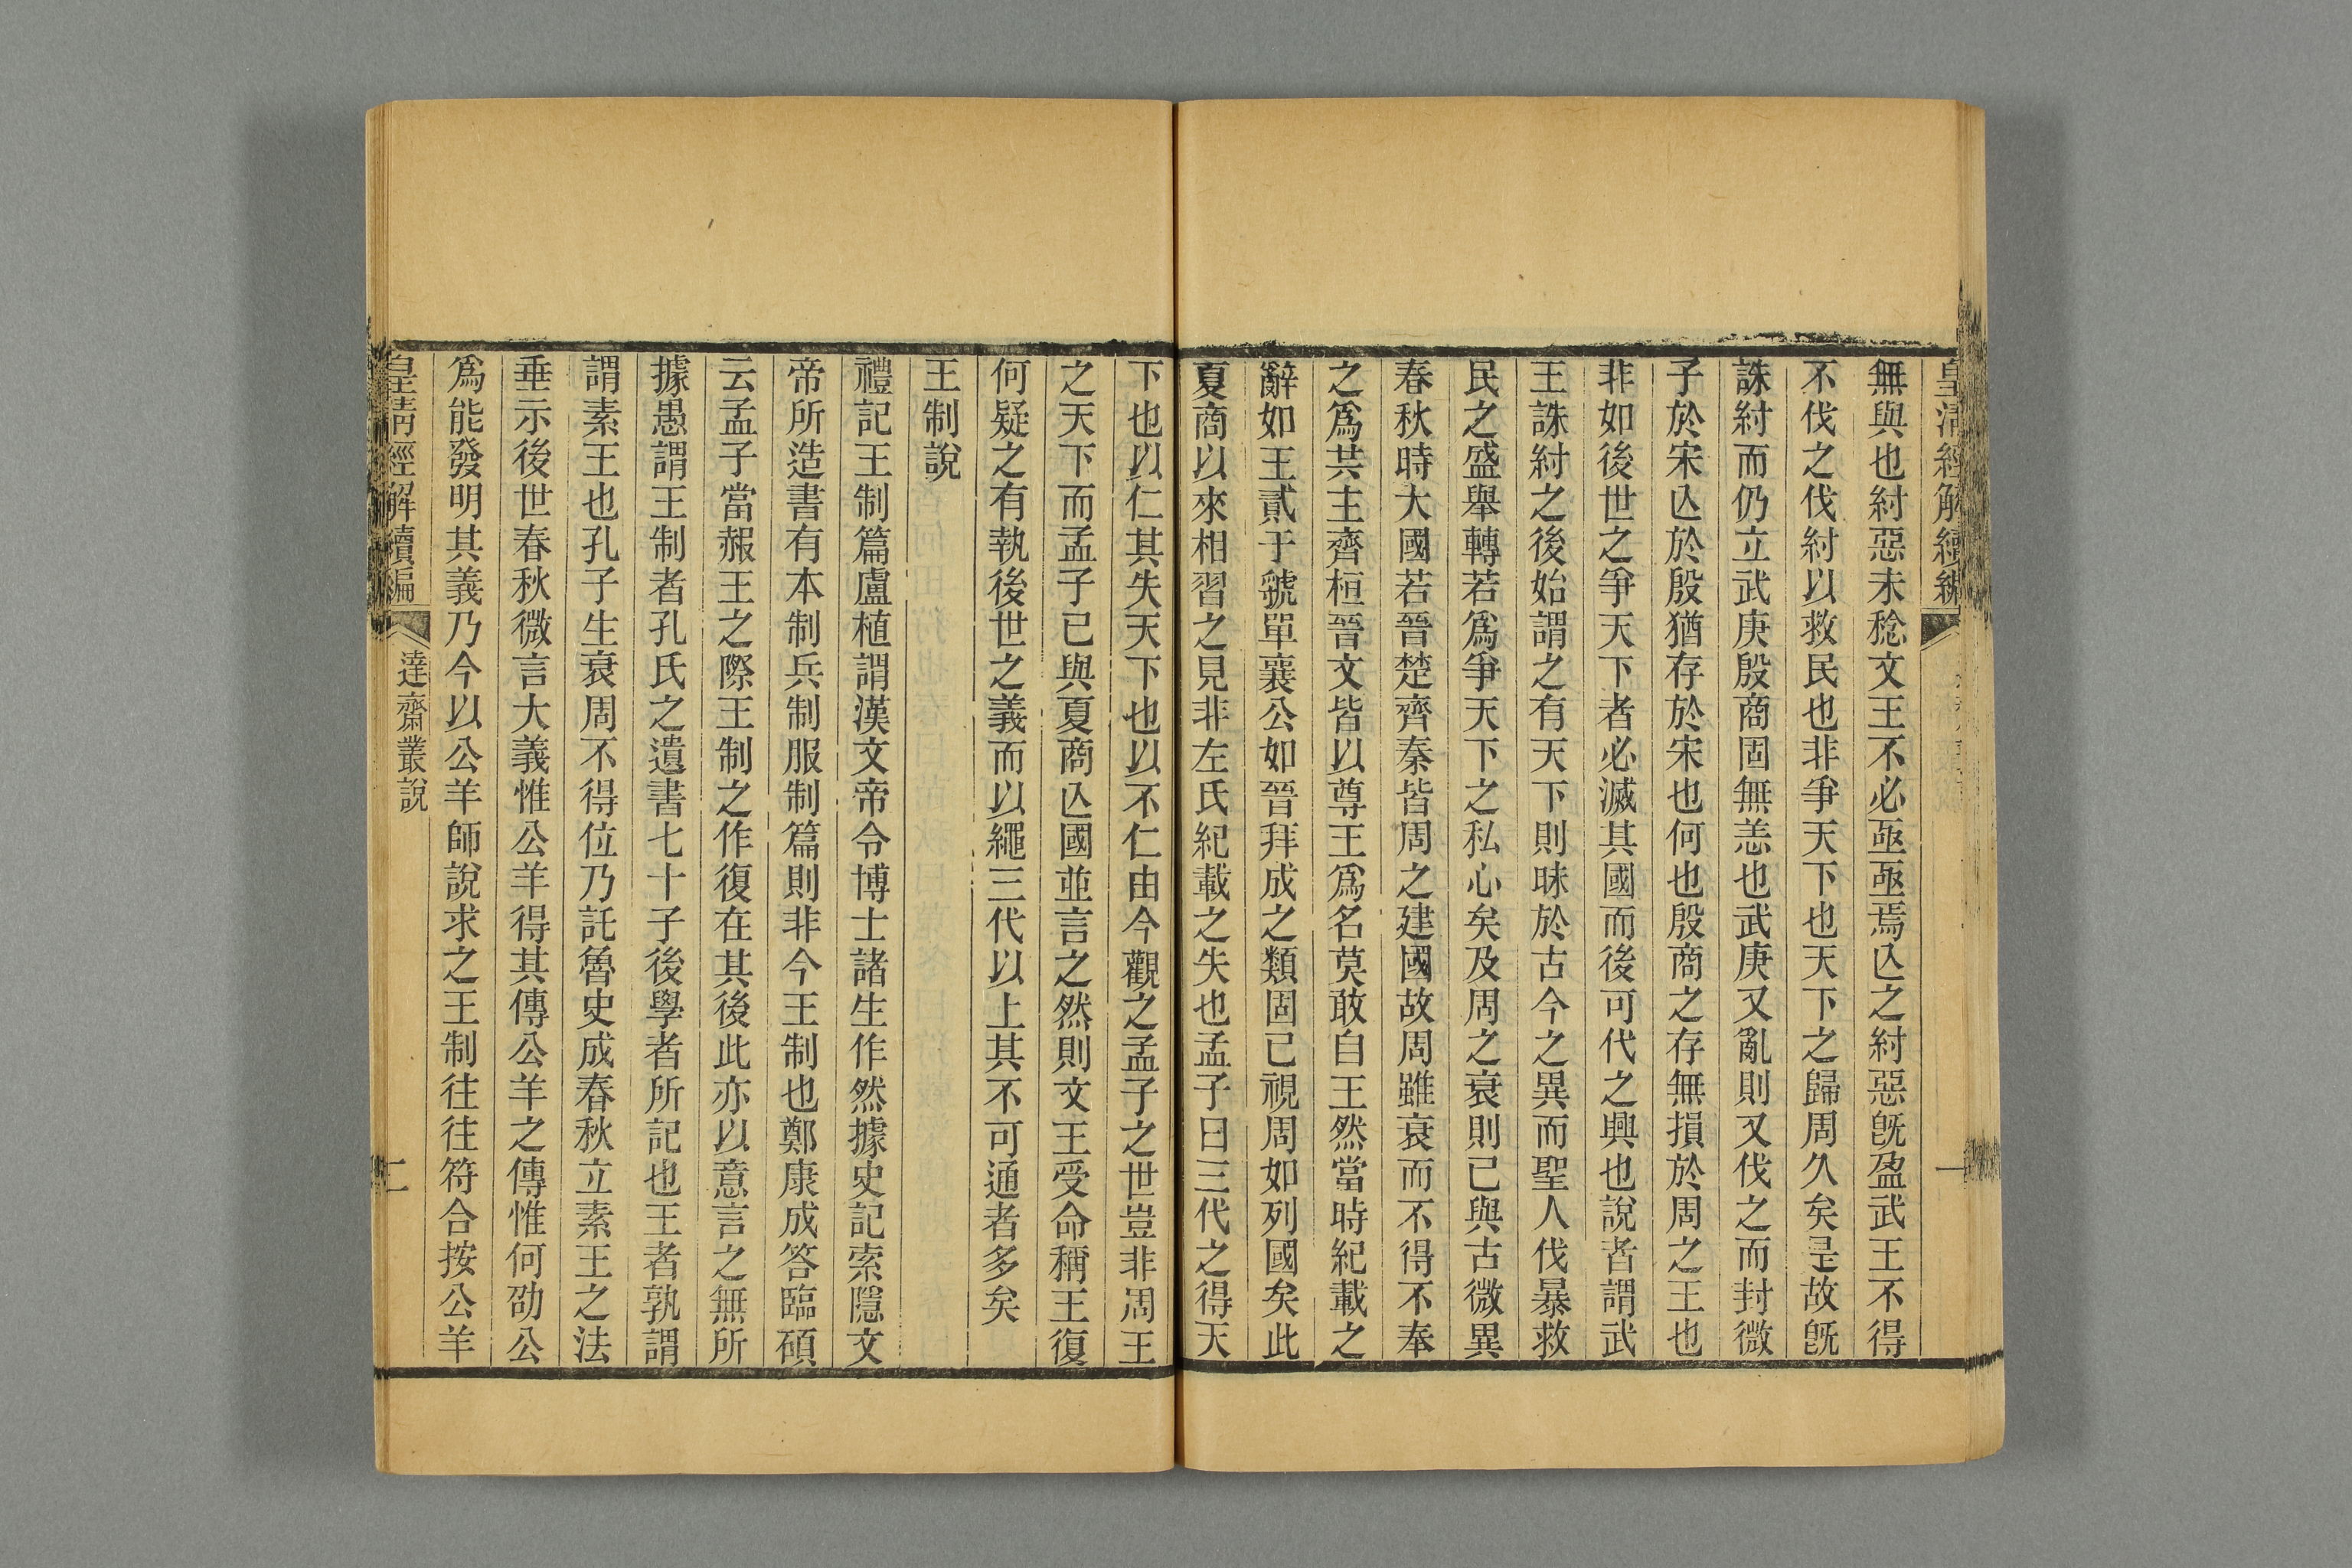 皇清經解續編
一
無與也紂惡未稔文王不必亟亟焉亾之紂惡旣盈武王不得
不伐之伐紂以救民也非爭天下也天下之歸周久矣是故旣
誅紂而仍立武庚殷商固無恙也武庚又亂則又伐之而封微
子於宋亾於殷猶存於宋也何也殷商之存無損於周之王也
非如後世之爭天下者必滅其國而後可代之興也說者謂武
王誅紂之後始謂之有天下則昧於古今之異而聖人伐暴救
民之盛舉轉若爲爭天下之私心矣及周之衰則已與古微異
春秋時大國若晉楚齊秦皆周之建國故周雖衰而不得不奉
之爲共主齊桓晉文皆以尊王爲名莫敢自王然當時紀載之
辭如王貳于虢單襄公如晉拜成之類固已視周如列國矣此
夏商以來相習之見非左氏紀載之失也孟子曰三代之得天
下也以仁其失天下也以不仁由今觀之孟子之世豈非周王
之天下而孟子已與夏商亾國並言之然則文王受命稱王復
何疑之有執後世之義而以繩三代以上其不可通者多矣
王制說
禮記王制篇盧植謂漢文帝令博士諸生作然據史記索隱文
帝所造書有本制兵制服制篇則非今王制也鄭康成答臨碩
云孟子當赧王之際王制之作復在其後此亦以意言之無所
據愚謂王制者孔氏之遺書七十子後學者所記也王者孰謂
謂素王也孔子生衰周不得位乃託魯史成春秋立素王之法
垂示後世春秋微言大義惟公羊得其傳公羊之傳惟何劭公
爲能發明其義乃今以公羊師說求之王制往往符合按公羊
皇清經解續編
達齋叢說
二